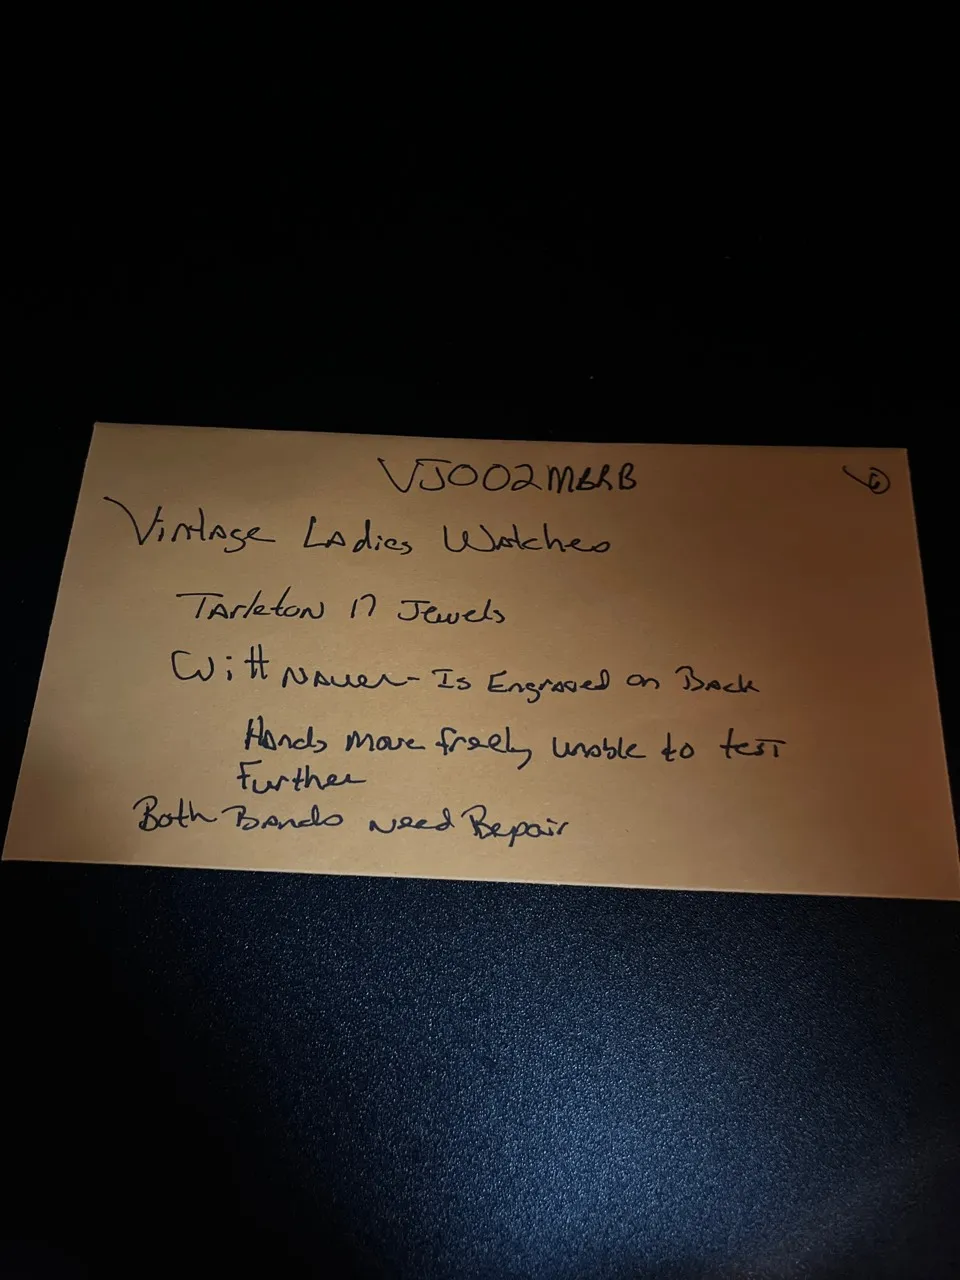 VJ002MBRB
Vintage Ladies Watches
Tarleton 17 Jewels
Wittnauer - Is Engraved on Back
Hands move freely unable to test
Further
Both Bands Need Repair